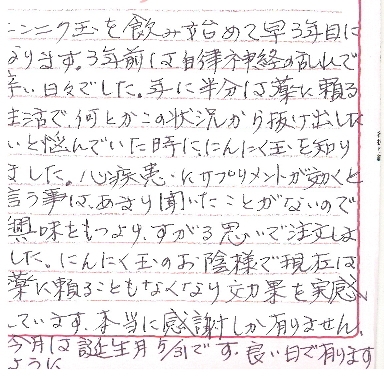 ニンニク玉を飲み始めて早3年目に
なります。3年前は自律神経の乱れで
辛い日々でした。年に半分は薬に頼る
生活で、何とかこの状況から抜け出した
いと悩んでいた時に、にんにく玉を知り
ました。心疾患にサプリメントが効くと
言う事は、あまり聞いたことがないので
興味をもつより、すがる思いで注文しま
した。にんにく玉のお陰様で現在は
薬に頼ることもなくなり効果を実感
しています。本当に感謝しか有りません。
今月は誕生月5/31です。良い日で有ります
ように